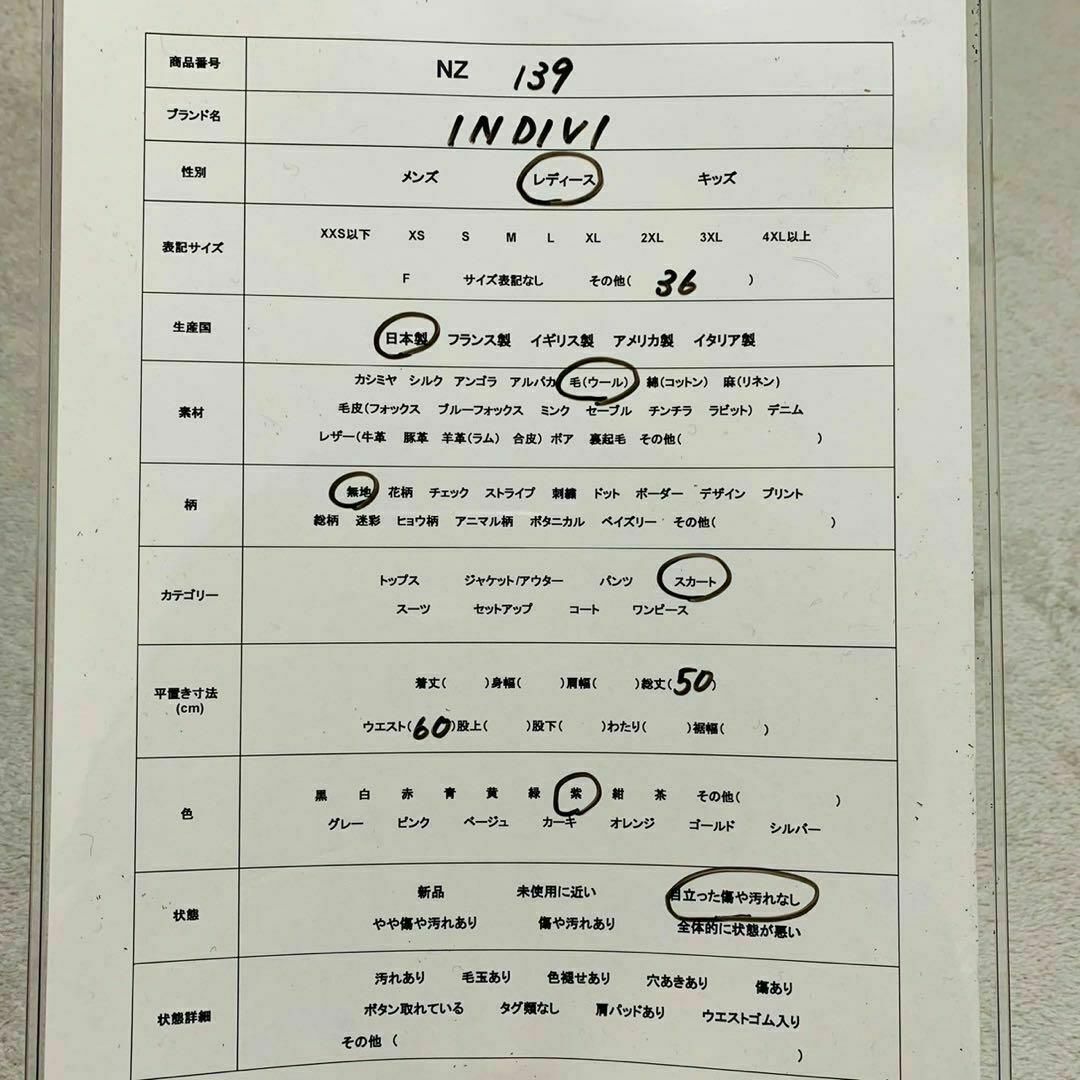 商品番号 NZ 139
ブランド名 INDIVI
性別 メンズ レディース キッズ
XXS以下 XS S M L XL 2XL 3XL 4XL以上
表記サイズ
F サイズ表記なし その他( 36 )
生産国 日本製 フランス製 イギリス製 アメリカ製 イタリア製
カシミヤ シルク アンゴラ アルパカ 毛(ウール) 綿(コットン) 麻(リネン)
素材 毛皮(フォックス ブルーフォックス ミンク セーブル チンチラ ラビット) デニム
レザー(牛革 豚革 羊革(ラム) 合皮) ボア 裏起毛 その他( )
無地 花柄 チェック ストライプ 刺繍 ドット ボーダー デザイン プリント
柄
総柄 迷彩 ヒョウ柄 アニマル柄 ボタニカル ペイズリー その他( )
トップス ジャケット/アウター パンツ スカート
カテゴリー
スーツ セットアップ コート ワンピース
着丈( )身幅( )肩幅( )総丈(50)
平置き寸法
(cm)
ウエスト(60)股上( )股下( )わたり( )裾幅( )
黒 白 赤 青 黄 緑 紫 紺 茶 その他( )
色
グレー ピンク ベージュ カーキ オレンジ ゴールド シルバー
新品 未使用に近い 目立った傷や汚れなし
状態
やや傷や汚れあり 傷や汚れあり 全体的に状態が悪い
汚れあり 毛玉あり 色褪せあり 穴あきあり 傷あり
状態詳細 ボタン取れている タグ類なし 肩パッドあり ウエストゴム入り
その他 ( )